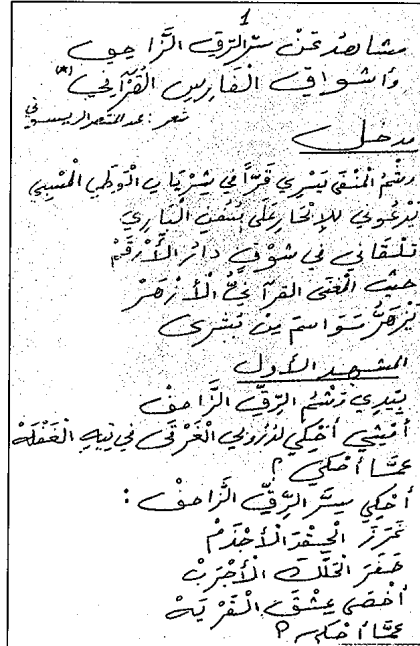 1
مشاهدُ عَنْ سِرِّ الرِّقِّ الزَّاحِفِ
وأشواقِ الفارسِ القُرْآني (*)
شعر: عبد المنتصر الريسوني
مدخل
وشْمُ المنْفَى يَسْرِي في شِرْيانِ الوَطَنِ المَسْبي
يَدْعُوني للإبْحارِ عَلَى
تَلْقاني في شوْقٍ دارُ الأرْقَمْ
حيْثُ المعْنَى القرآنيُّ الأزْهَرْ
يُزْهِرُ مَواسِمَ مِنْ بُشْرى
المشهد الأول
بِيَدِي وَشْمُ الرِّقِّ الزَّاحِفْ
أمْشِي أحْكِي لدُرُوبي الغَرْقَى في تِيهِ الغَفْلَهْ
عَمَّا أحْكي ؟
أحْكِي سِرَّ الرِّقِّ الزَّاحِفْ :
غَرَزَ الحِقْدَ الأجْذَمْ
ضَفَرَ الحَلَكَ الأجْرَبْ
أخْصَى عِشْقَ القَرْيَهْ
عَمَّا أحْكي ؟